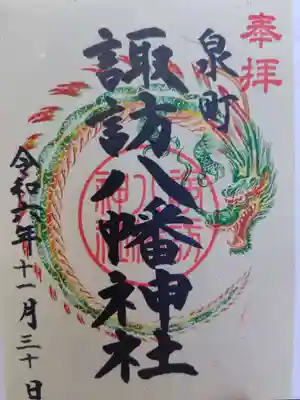 奉拝
泉町
諏訪八幡神社
諏訪八幡神社
令和六年十一月三十日